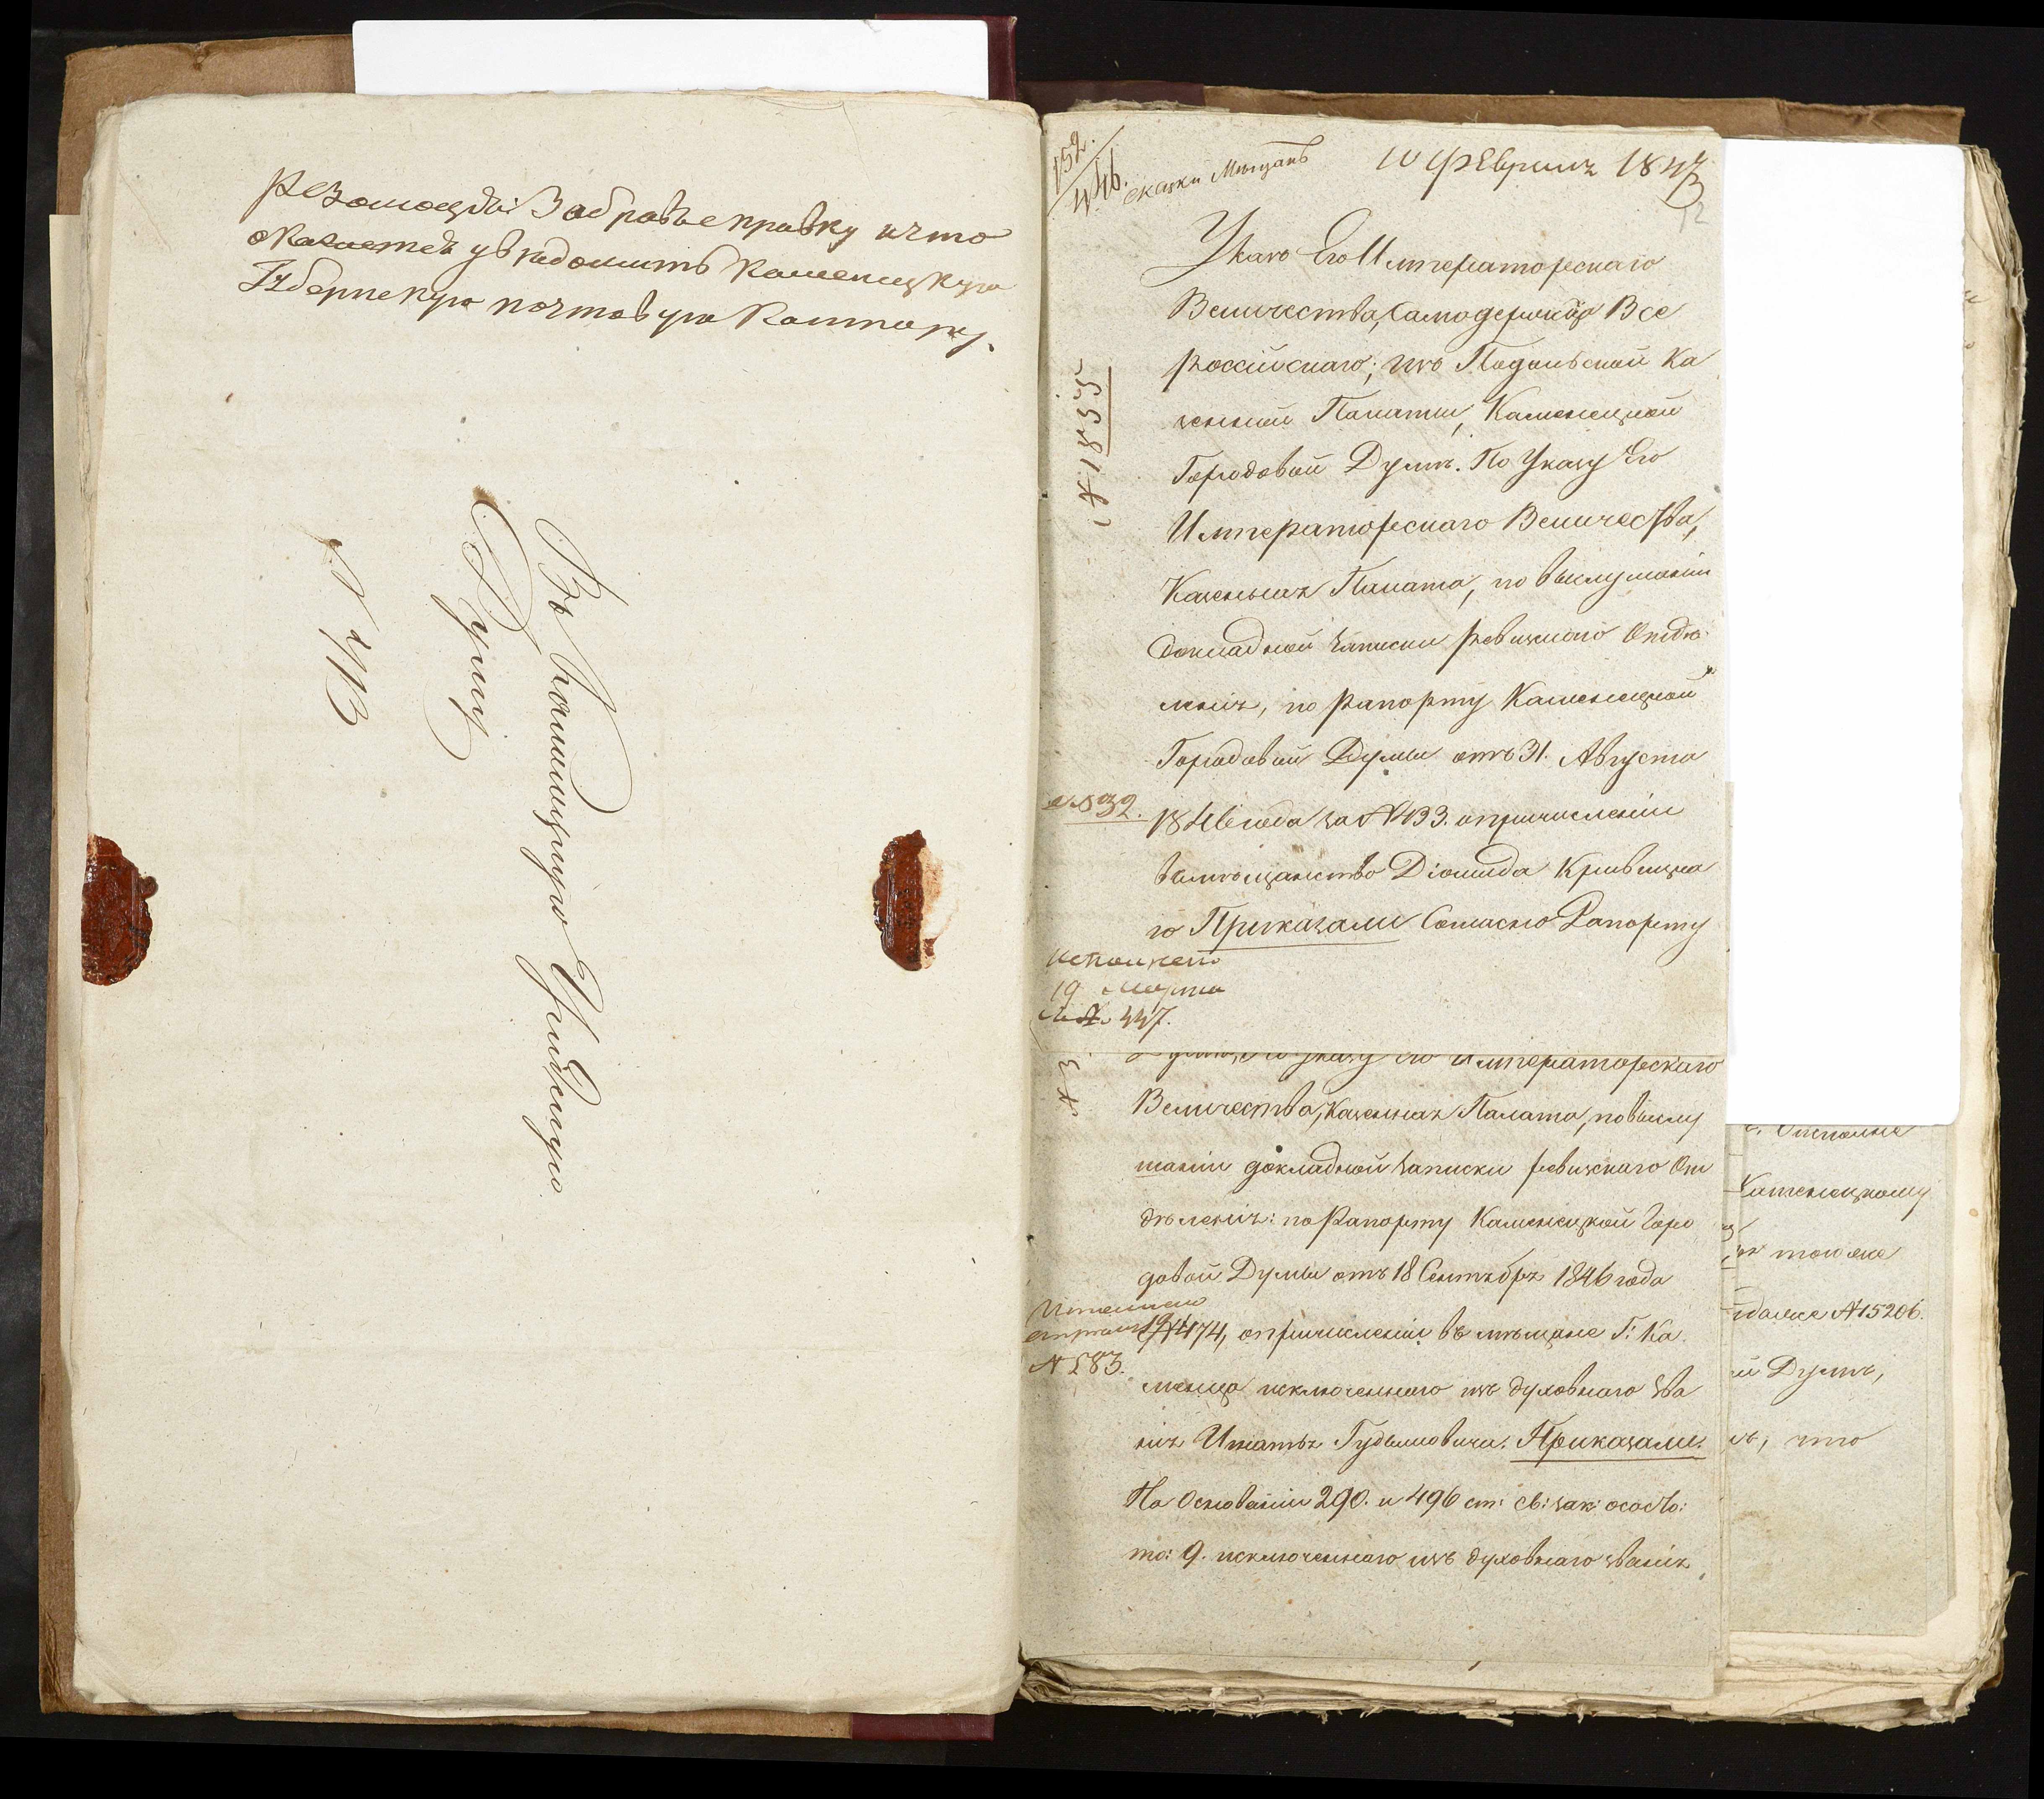 Резолюція: Забрать справку и что
окажется увѣдомить Каменецкую
Губернскую почтовую Контору.
Въ Каменецкую Градскую
Думу
152.
446.
сказки Мѣщанъ
10 Февраля 1847
12
Указъ Его Императорскаго
Величества, Самодержца Все
россійскаго; изъ Подольской Ка
зенной Палаты, Каменецкой
Городовой Думѣ. По Указу Его
Императорскаго Величества,
Казенная Палата, по выслушаніи
докладной записки ревизскаго Отдѣ
ленія, по рапорту Каменецкой
Городовой Думы отъ 31. Августа
1846 года за № 433. о причисленіи
въ мѣщанство Діомида Кривицка
го Приказали Согласно Рапорту
№ 832.
исполнено
19 Марта
№ 447.
Думѣ, По Указу Его Императорскаго
Величества, Казенная Палата, по выслу
шаніи докладной записки ревизскаго От
дѣленія: по Рапорту Каменецкой Горо
довой Думы отъ 18 Сентября 1846 года
№ 474, о причисленіи въ мѣщане Г: Ка
менца исключеннаго изъ духовнаго зва
нія Игнатія Гудымовича. Приказали.
На Основаніи 290. и 496 ст: св: зак: о сост:
то: 9. исключеннаго изъ духовнаго званія
№ 583.
Каменецкому
также
№ 15206.
й Думѣ,
что